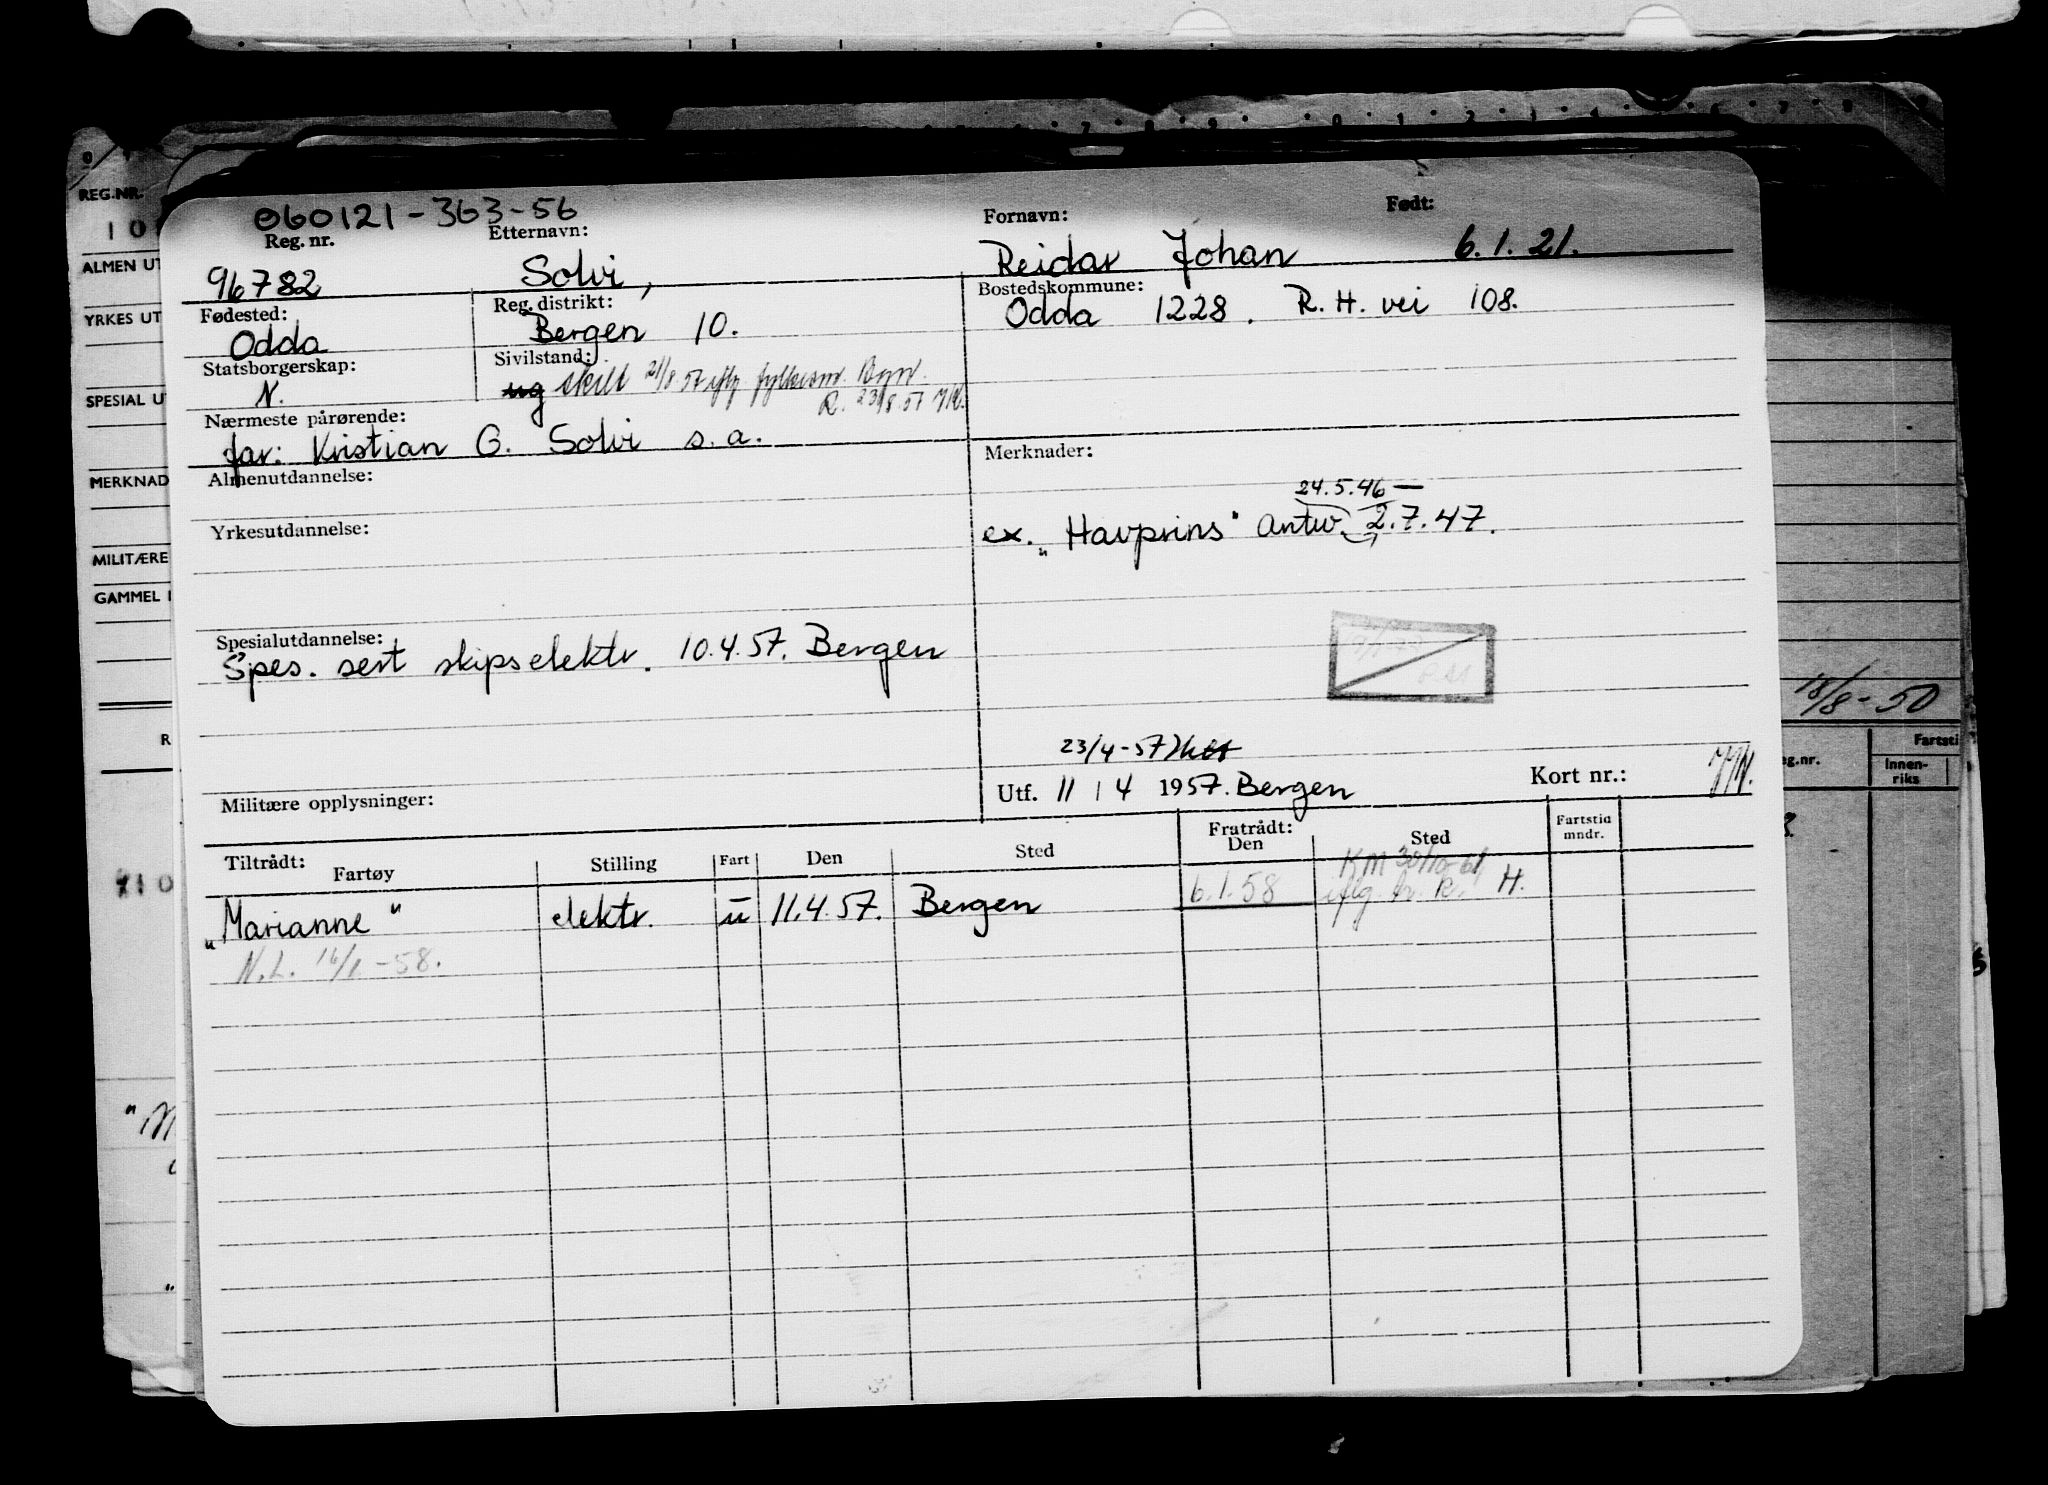 060121-363-56
Reg. nr. Etternavn: Fornavn: Født:
96782 Solvi, Reidar Johan 6.1.21.
Fødested: Reg. distrikt: Bostedskommune:
Odda Bergen 10. Odda 1228. R. H. vei 108.
Statsborgerskap: Sivilstand:
N. ug skilt 21/8.57 iflg fylkesm.
R. 23/8.57
Nærmeste pårørende:
far: Kristian G. Solvi s.a.
Almenutdannelse: Merknader:
24.5.46 —
Yrkesutdannelse: ex. „Havprins" Antw. 2.7.47.
Spesialutdannelse:
Spes. sert skipselektr. 10.4.57. Bergen
23/4-57
Militære opplysninger: Utf. 11 / 4 1957. Bergen Kort nr.:
Tiltrådt: Fartøy Stilling Fart Den Sted Fratrådt: Den Sted Fartstid mndr.
KM 30/10-61
„Marianne" elektr. u 11.4.57. Bergen 6.1.58 iflg. br. R. H.
N.L. 16/1-58.
REG.NR.
10
ALMEN UT
YRKES UT
SPESIAL UT
MERKNAD
MILITÆRE
GAMMEL
R
18/8-50
Fartsti
eg.nr. Innen-
riks